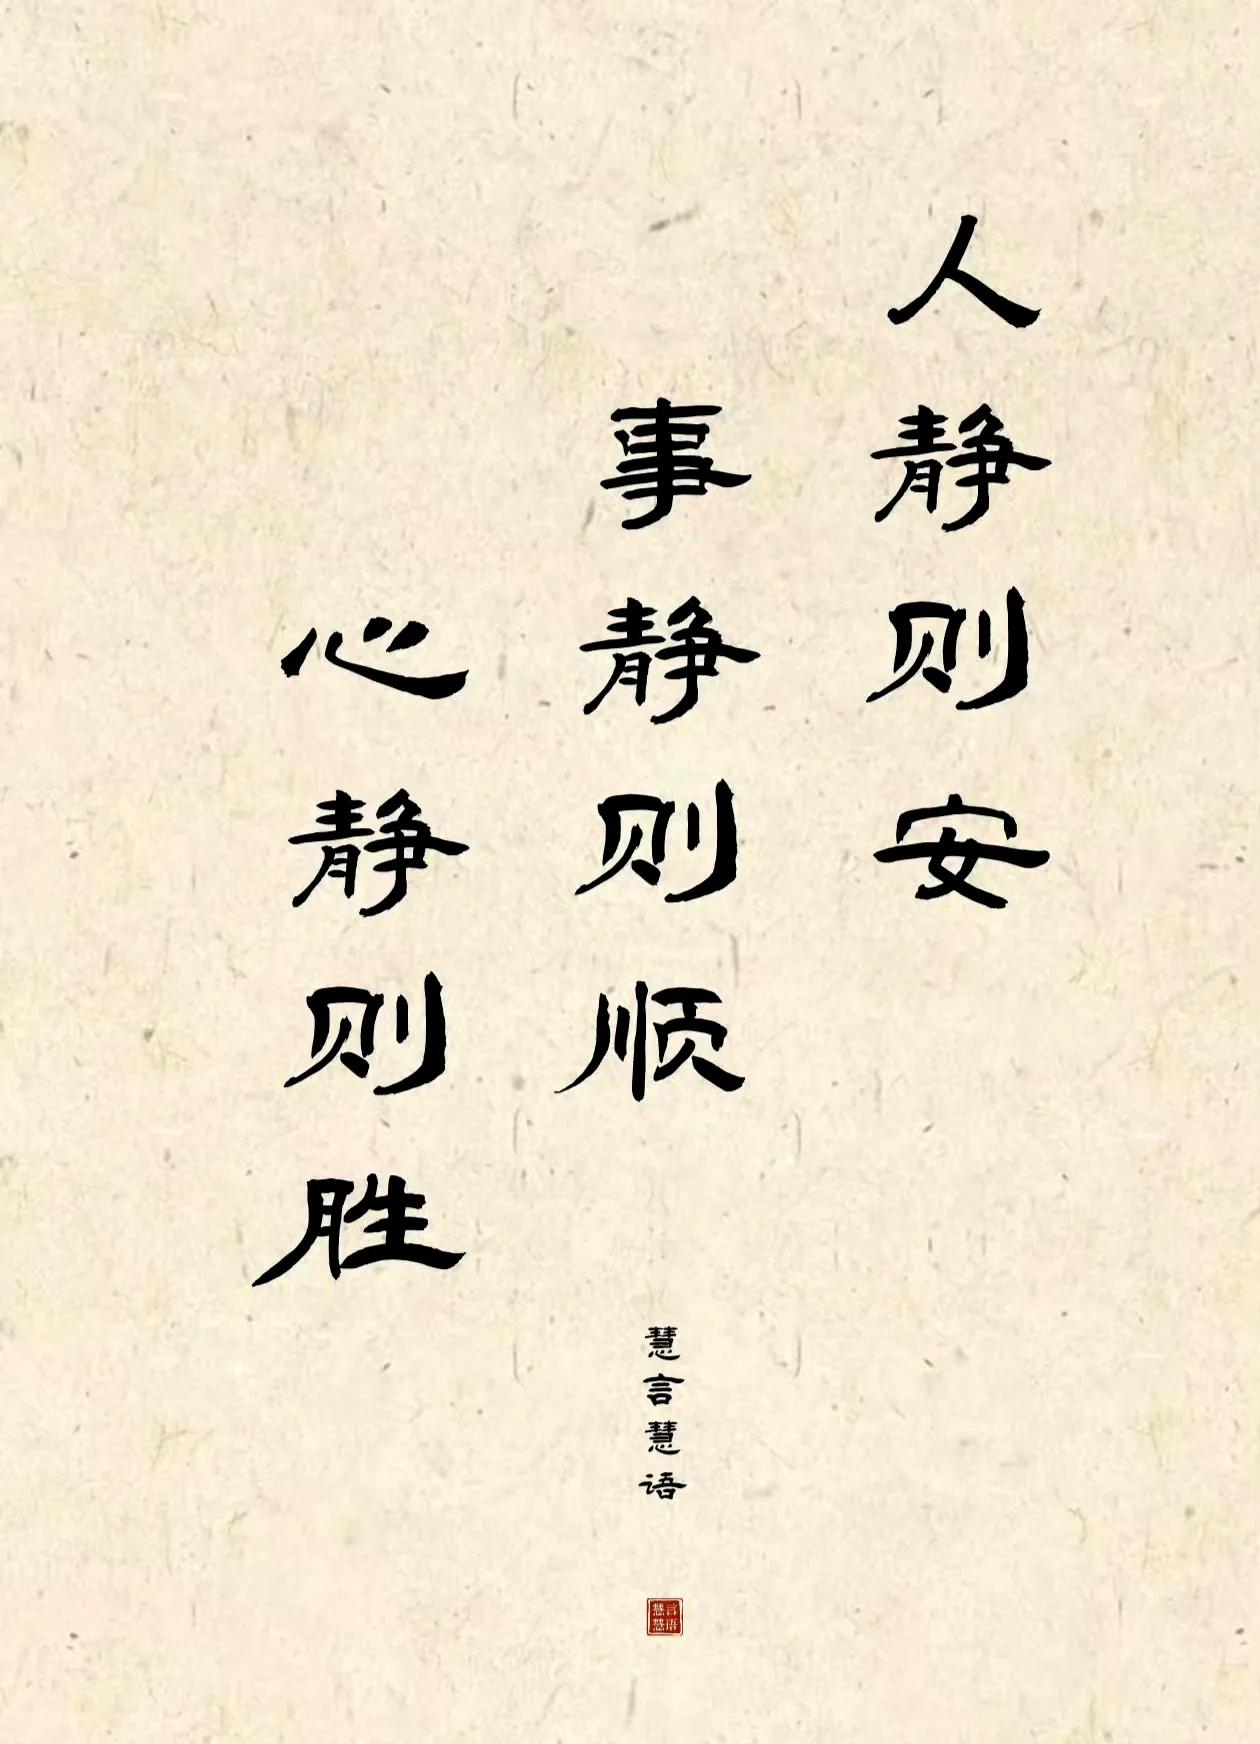 人静则安
事静则顺
心静则胜
慧言慧语
慧言慧语